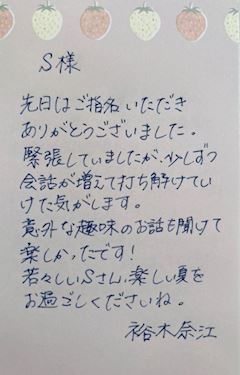 S様
先日はご指名いただき
ありがとうございました。
緊張していましたが、少しずつ
会話が増えて打ち解けてい
けた気がします。
意外な趣味のお話も聞けて
楽しかったです!
若々しいSさん、楽しい夏を
お過ごしくださいね。
裕木奈江